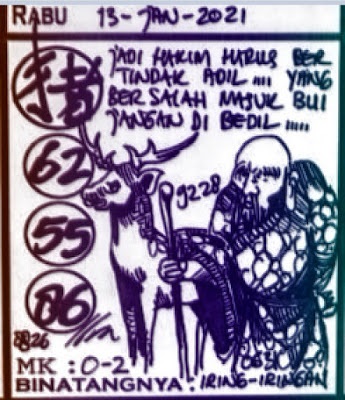 RABU 13-JAN-2021
JADI HAKIM HARUS BER
TINDAK ADIL .... YANG
BERSALAH MASUK BUI
JANGAN DI BEDIL .....
62
9228
55
86
8826
0631
MK : 0-2
BINATANGNYA : IRING-IRINGAN